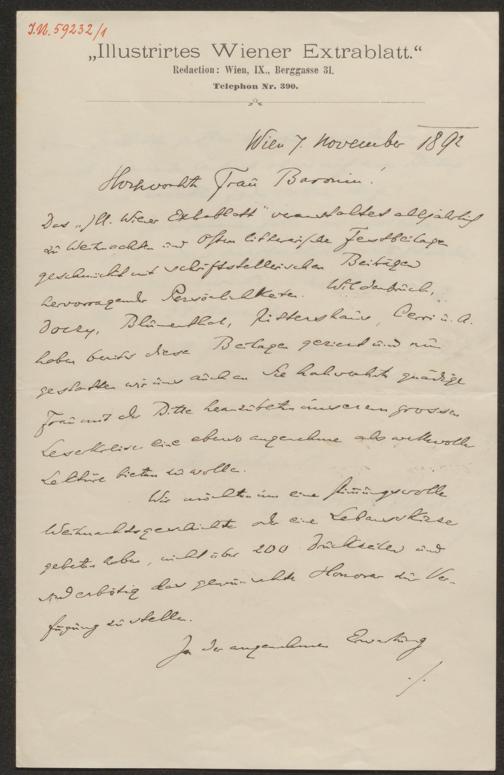 J.N. 59232/1
„Illustrirtes Wiener Extrablatt.“
Redaction: Wien, IX., Berggasse 31.
Telephon Nr. 390.
Wien 7. November 1892
Hochverehrte Frau Baronin!
Das „Ill. Wiener Extrablatt“ veranstaltet alljährlich
zu Weihnachten und Ostern litterarische Festbeilagen
geschmückt mit schriftstellerischen Beiträgen
hervorragender Persönlichkeiten. Wildenbruch,
Doczy, Blumenthal, Rittershaus, Cerri u. A.
haben bereits diese Beilagen geziert und nun
gestatten wir uns auch an Sie hochverehrte gnädige
Frau mit der Bitte heranzutreten unserem grossen
Leserkreise eine ebenso angenehme als wertvolle
Lektüre bieten zu wollen.
Wir möchten um eine stimmungsvolle
Weihnachtsgeschichte oder eine Lebensskizze
gebeten haben, nicht über 200 Druckzeilen und
sind erbötig das gewünschte Honorar zur Ver-
fügung zu stellen.
In der angenehmen Erwartung
./.